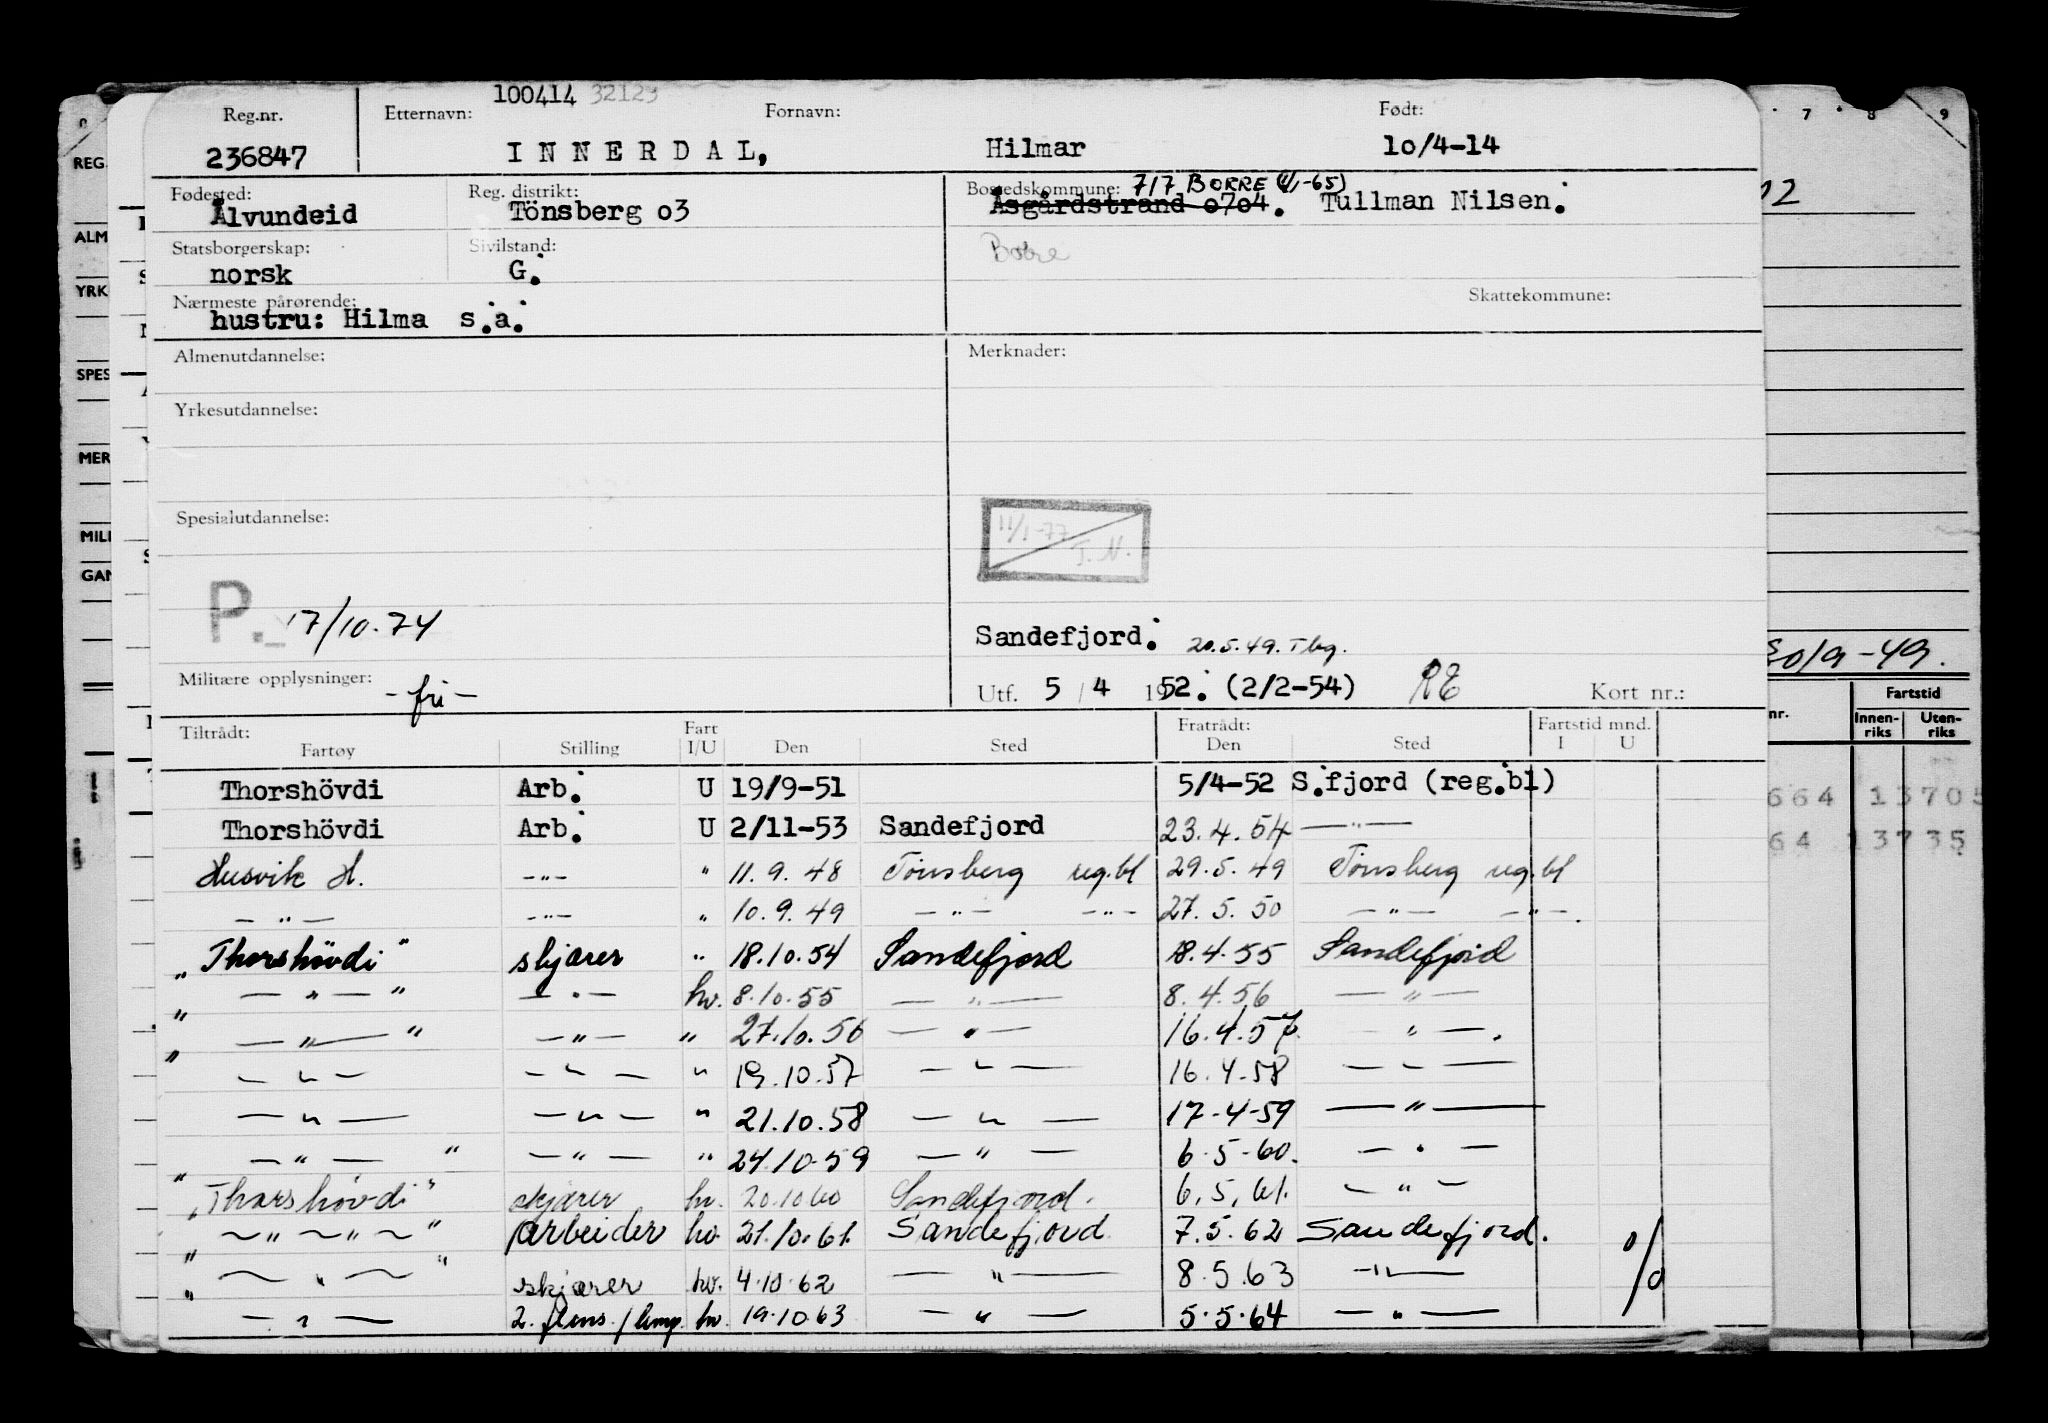 100414 32123
Reg.nr. Etternavn: Fornavn: Født:
236847 INNERDAL, Hilmar 10/4-14
Fødested: Reg. distrikt: Bostedskommune: 717 BORRE (1/1-65)
Ålvundeid Tönsberg o3 Åsgårdstrand o7o4. Tullman Nilsen.
Statsborgerskap: Sivilstand: Borre
norsk G.
Nærmeste pårørende: Skattekommune:
hustru: Hilma s.a.
Almenutdannelse: Merknader:
Yrkesutdannelse:
Spesialutdannelse: 11/1-77 T.N.
P. 17/10.74
Sandefjord. 20.5.49. Tbg.
Militære opplysninger: -fri-
Utf. 5/4 1952. (2/2-54) RE Kort nr.:
Tiltrådt: Fart Fratrådt: Fartstid mnd.
Fartøy Stilling I/U Den Sted Den Sted I U
Thorshövdi Arb. U 19/9-51 5/4-52 S.fjord (reg.bl)
Thorshövdi Arb. U 2/11-53 Sandefjord 23.4.54 —"—
Husvik H. -"- " 11.9.48 Tönsberg reg.bl 29.5.49 Tönsberg reg.bl
—"— -"- " 10.9.49 —"— -"- 27.5.50 —"— -"-.
"Thorshövdi" skjærer " 18.10.54 Sandefjord 18.4.55 Sandefjord
"—"—" —"— hv. 8.10.55 —"— 8.4.56 —"—
"—"—" —"— " 27.10.56 —"— 16.4.57. —"—.
"—"— —"— " 19.10.57 —"— 16.4.58 —"—
—"— —"— " 21.10.58 —"— 17-4-59 —"—
—"—" —"— " 24.10.59 —"— 6.5-60. —"—
"Thorshövdi" skjærer hv. 20.10.60 Sandefjord. 6.5.61. —"—
"~"~"~" Arbeider hv. 21.10.61. Sandefjord 7.5.62 Sandefjord.
"—"—" skjærer hv. 4.10.62 —"— 8.5.63 -"-
"—"— 2. flens./lemp. hv 19.10.63 —"— 5.5.64 —"—
7 8 9
REG.
ALM
YRK
SPES
MER
MILI
GAN
30/9-49.
nr. Fartstid
Innen-riks Uten-riks
664 13705
64 13735